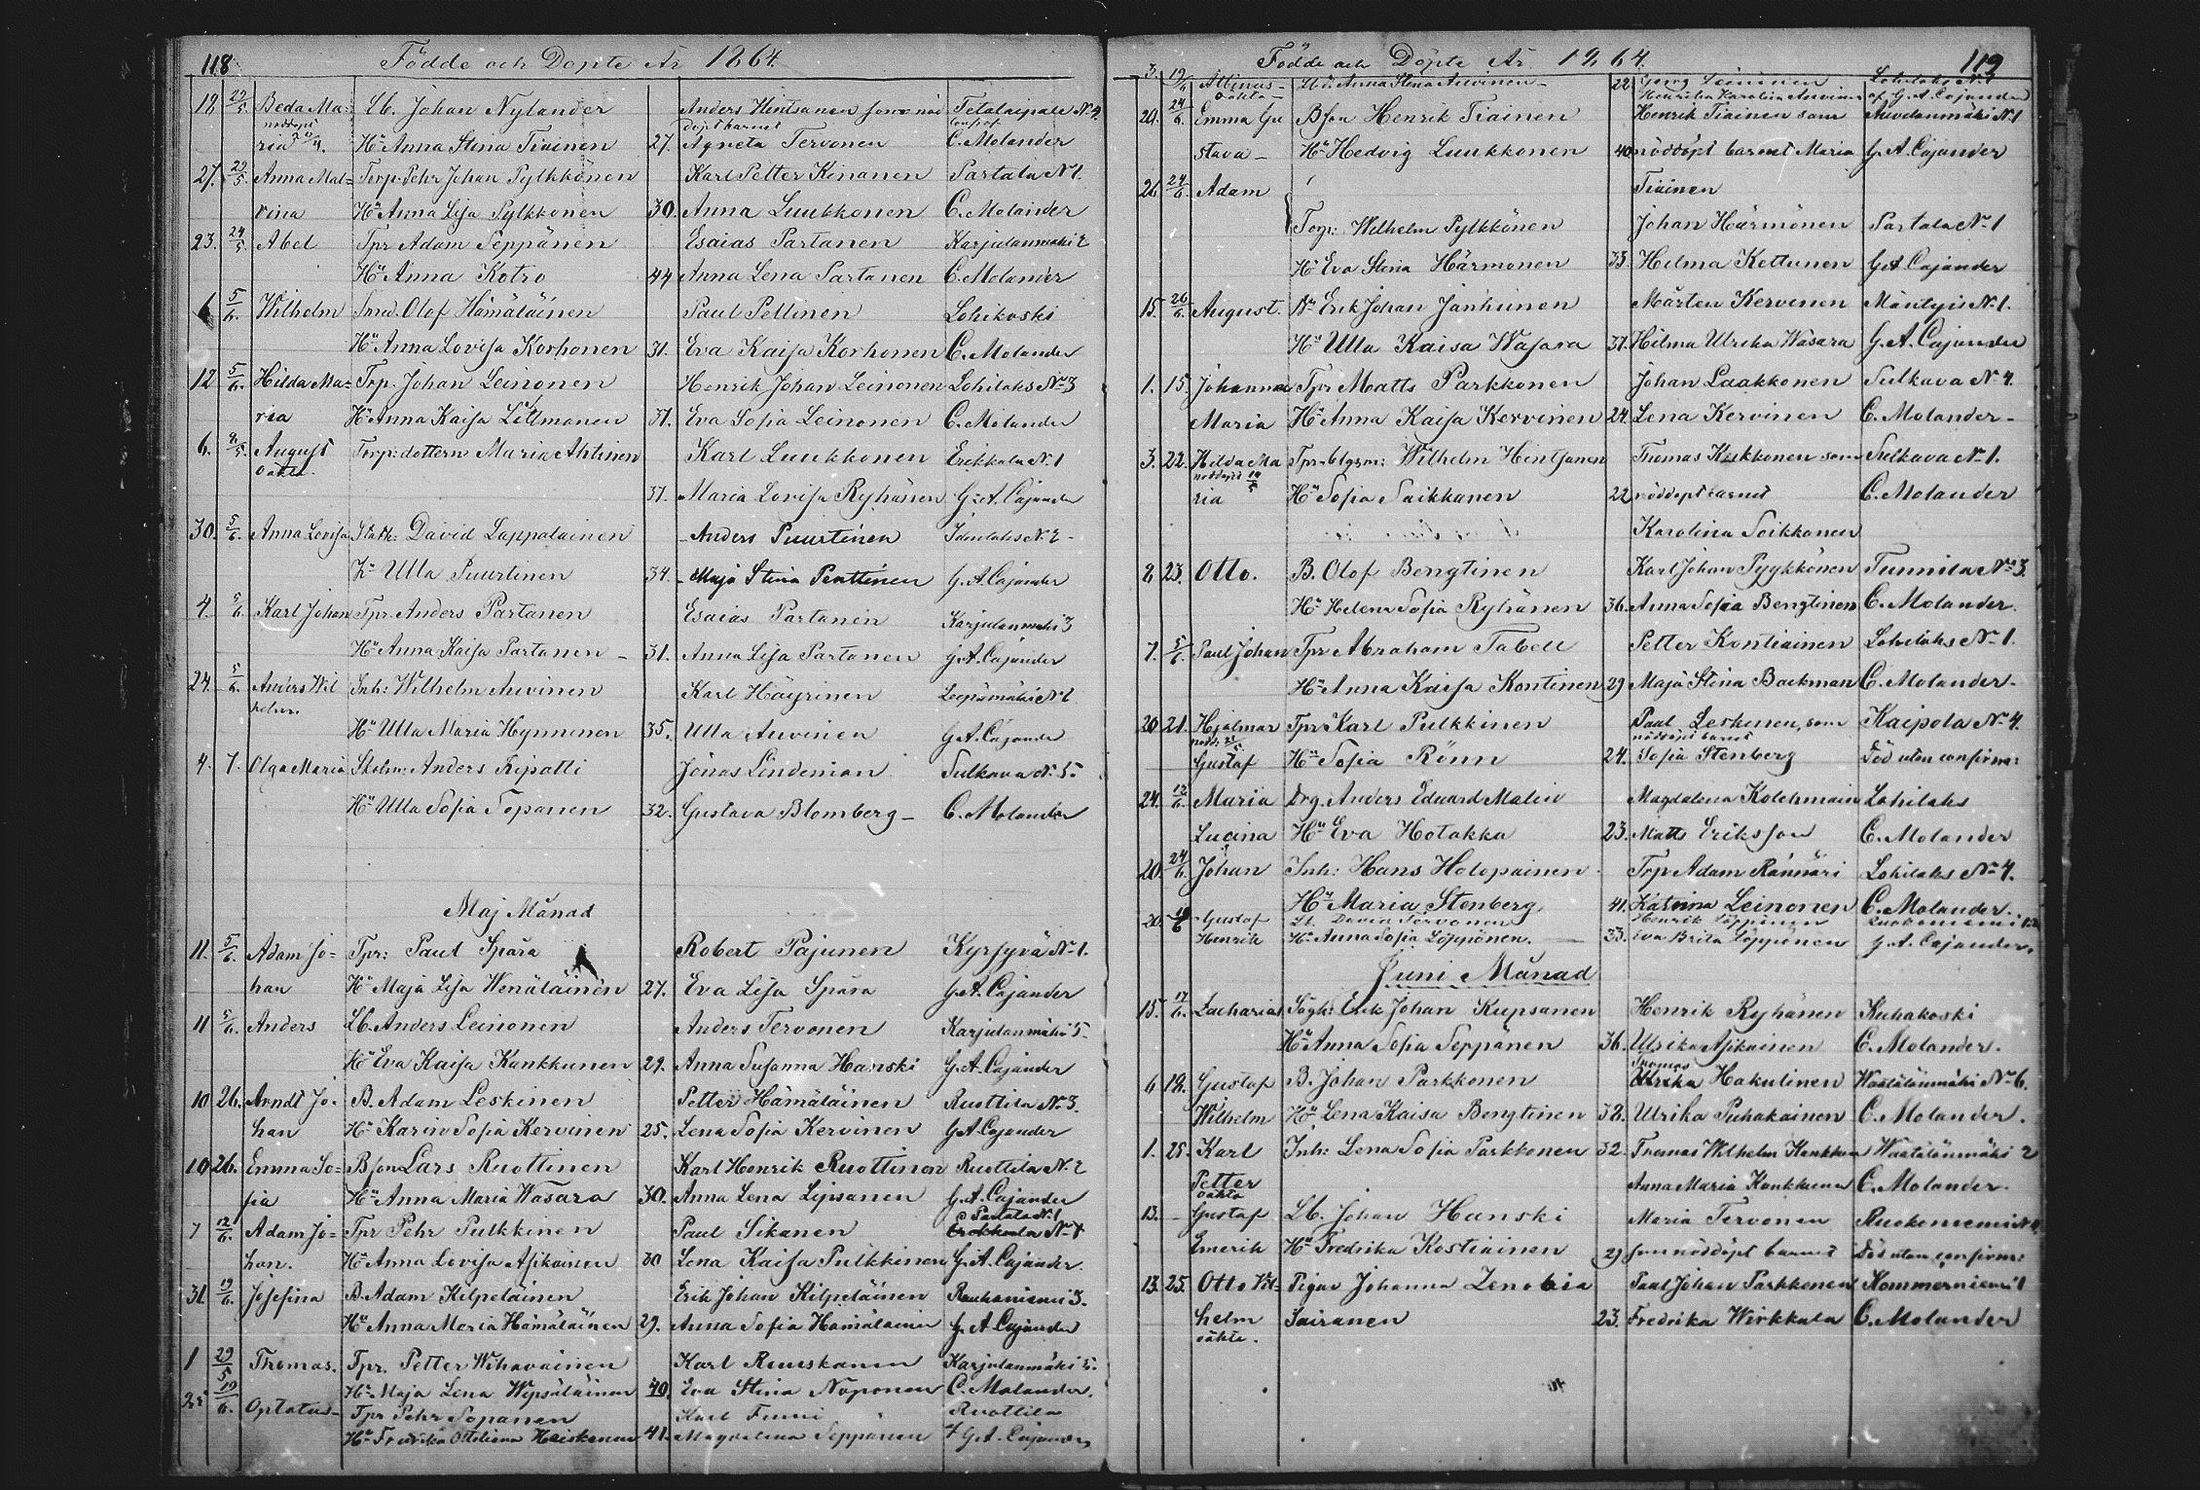 118 Födde och Döpte År 1864.
12. 22/5 Beda Ma= Lb. Johan Nylander Anders Hintsanen som nöd N:4.
nöddöpt döpt barnet Confirm.
ria H:u Anna Stina Tiainen 27. Agneta Tervonen C. Molander
27. 22/5. Anna Mal= Torp. Pehr Johan Pylkkönen Karl Petter Kinanen Partala N:1.
vina H:u Anna Lisa Pylkkönen 30. Anna Luukkonen C. Molander
23. 24/5. Abel Tpr Adam Seppänen Esaias Partanen Karjulanmäki 2
H:u Anna Kotro 44 Anna Lena Partanen C. Molander
6 5/6. Wilhelm Smed. Olof Hämäläinen Paul Pellinen Lohikoski
H:u Anna Lovisa Korhonen 31. Eva Kaisa Korhonen C. Molander
12 5/6. Hilda Ma= Torp. Johan Leinonen Henrik Johan Leinonen Lohilaks N:3
ria H:u Anna Kaisa Littmanen 31. Eva Sofia Leinonen C. Molander
6. August Torp: dottern Maria Ahtinen Karl Luukkonen Erikkala N:1
oäkta.
37. Maria Lovisa Ryhänen G. A. Cajander
30. 5/6. Anna Lovisa Stath: David Lappalainen Anders Puurtinen Idanlaks N:2
H:u Ulla Puurtinen 34. Maja Stina Penttinen G. A. Cajander
4. 5/6. Karl Johan Tpr. Anders Partanen Esaias Partanen Karjulanmäki 3
H:u Anna Kaisa Partanen 31. Anna Lisa Partanen G. A. Cajander
24. 5/6. Anders Wil Inh: Wilhelm Auvinen Karl Häyrinen
helm.
H:u Ulla Maria Hynninen 35. Ulla Auvinen G. A. Cajander
4. 7. Olga Maria Skolm: Anders Tripatti Jonas Lindeman Sulkava N:5.
H:u Ulla Sofia Sopanen 32. Gustava Blomberg C. Molander
Maj Månad
11. 5/6. Adam Jo= Tpr: Paul Spåra Robert Pajunen Kyrsyvä N:1.
han H:u Maja Lisa Wenäläinen 27. Eva Lisa Spåra G. A. Cajander
11 5/6. Anders Lb. Anders Leinonen Anders Tervonen Karjulanmäki 5.
H:u Eva Kaisa Kankkunen 29. Anna Susanna Hanski G. A. Cajander
10 26. Arndt Jo= B. Adam Leskinen Petter Hämäläinen Ruottila N:3.
han H:u Karin Sofia Kervinen 25. Lena Sofia Kervinen G. A. Cajander
10 26. Emma So= Bson Lars Ruottinen Karl Henrik Ruottinen Ruottila N:2
fia H:u Anna Maria Wasara 30. Anna Lena Lipsanen G. A. Cajander
Partala N:1
7 12/6. Adam Jo= Tpr Pehr Pulkkinen Paul Sikanen
han. H:u Anna Lovisa Asikainen 30 Lena Kaisa Pulkkinen G. A. Cajander.
31. 19/6. Josefina B. Adam Kilpeläinen Erik Johan Kilpeläinen Rauhaniemi 3.
H:u Anna Maria Hämäläinen 29. Anna Sofia Hämäläinen G. A. Cajander
1 29/5 Thomas. Tpr. Petter Wihavainen Karl Reuskanen Karjulanmäki 5.
H:u Maja Lena Wepsäläinen 40. Eva Stina Naponen C. Molander.
19/6. Optatus Tpr Pehr Sopanen Karl Finni Ruottila
H:u Fredrika Ottiliana Heiskanen 41. Magdalena Seppänen G. A. Cajander
Födde och Döpte År 1864. 119
3. 19/6 Albinus H:u Anna Stina Auvinen 22 Georg Leinonen Lohilaks
oäkta Henrika Karolina Auvinen af G. A. Cajander
20. 24/6. Emma Gu Bson Henrik Tiainen Henrik Tiainen som Auvilanmäki N:1
stava H:u Hedvig Luukkonen 40 nöddöpt barnet Maria G. A. Cajander
26 24/6. Adam Tiainen
Torp: Wilhelm Pylkkönen Johan Härmönen Partala N:1
H:u Eva Stina Härmonen 33. Helma Kettunen G. A. Cajander
15. 26/6. August. B:n Erik Johan Janhunen Mårten Kervinen Mäntyis N:1.
H:u Ulla Kaisa Wasara 37. Hilma Ulrika Wasara G. A. Cajander
1. 15. Johanna Tpr Matts Parkkonen Johan Laakkonen Sulkava N:4.
Maria H:u Anna Kaisa Kervinen 24. Lena Kervinen C. Molander
3. 22. Hilda Ma Tpr blgsm: Wilhelm Hintsanen Thomas Kukkonen som Sulkava N:1.
nöddöpt
ria H:u Sofia Saikkanen 22 nöddöpt barnet C. Molander
Karolina Soikkonen
2 23. Otto. B. Olof Bengtinen Karl Johan Pyykkönen Tunnila N:3.
H:u Helena Sofia Ryhänen 36. Anna Sofia Bengtinen C. Molander.
7. 5/6. Paul Johan Tpr Abraham Tabell Petter Kontiainen Lohilaks N:1.
H:u Anna Kaisa Kontinen 29 Maja Stina Backman C. Molander.
20 21. Hjalmar Tpr Karl Pulkkinen Paul Leskinen, som Kaipola N:4.
nöddöpt barnet
Gustaf H:u Sofia Rönn 24. Sofia Stenberg Död utan confirm:
24. 12/6. Maria Drg. Anders Eduard Malin Magdalena Kolehmain Lohilaks
Lucina H:u Eva Hotakka 23. Matts Eriksson C. Molander
20. 24/6. Johan Inh: Hans Holopainen Torp Adam Rännäri Lohilaks N:4.
H:u Maria Stenberg. 41. Katrina Leinonen C. Molander.
20. Gustaf Lb. David Tervonen Henrik Löppönen Ruokoniemi
Henrik H:u Anna Sofia Löppönen. 33. Eva Brita Löppönen G. A. Cajander.
Juni Månad
15. 17/6. Zacharias Sågk: Erik Johan Kupsanen Henrik Ryhänen Kuhakoski
H:u Anna Sofia Seppänen 36. Ulrika Asikainen C. Molander.
Thomas
6 19. Gustaf B. Johan Parkkonen Hakulinen Waatalanmäki N:6.
Wilhelm H:u Lena Kaisa Bengtinen 38. Ulrika Puhakainen C. Molander.
1. 25. Karl Inh: Lena Sofia Parkkonen 32. Thomas Wilhelm Kankkunen Waatalanmäki 2
Petter Anna Maria Kankkunen C. Molander.
oäkta
13. Gustaf Lb. Johan Hanski Maria Tervonen Ruokoniemi
Emerik H:u Fredrika Kostiainen 29 som nöddöpt barnet Död utan confirm:
13. 25. Otto Wil= Pigan Johanna Zenobia Paul Johan Parkkonen Kommerniemi 1
helm Sairanen 23. Fredrika Wirkkala C. Molander
oäkta.